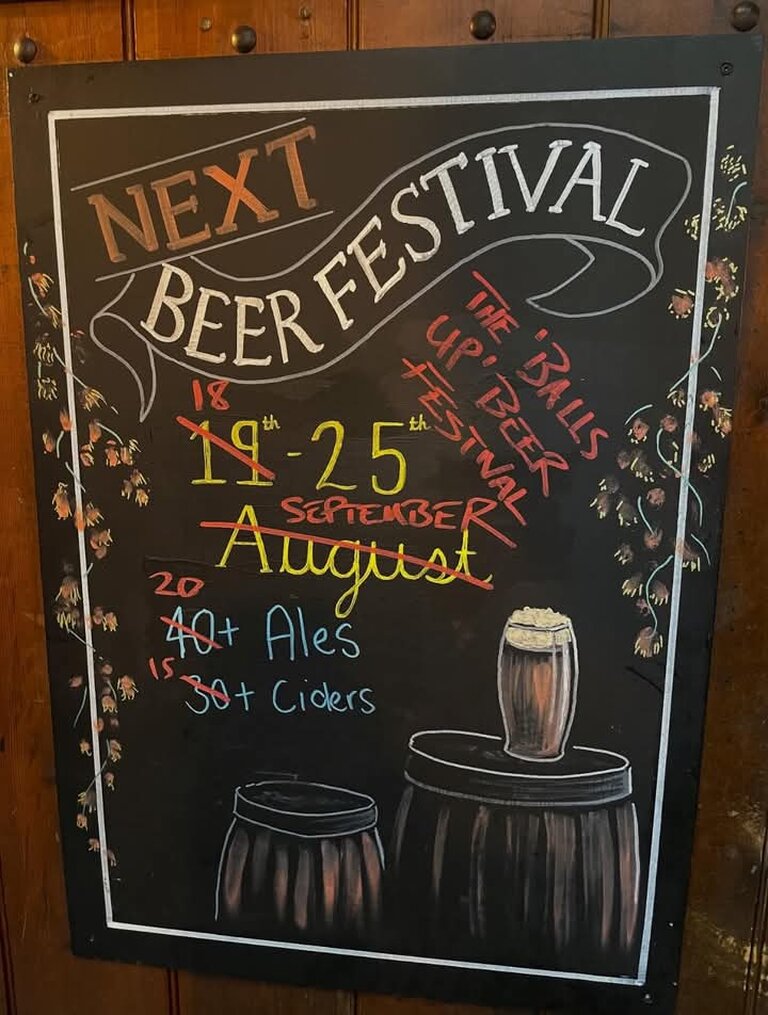 NEXT
BEER FESTIVAL
THE 'BALLS
UP' BEER
FESTIVAL
18
19th - 25th
SEPTEMBER
August
20
40+ Ales
15
30+ Ciders